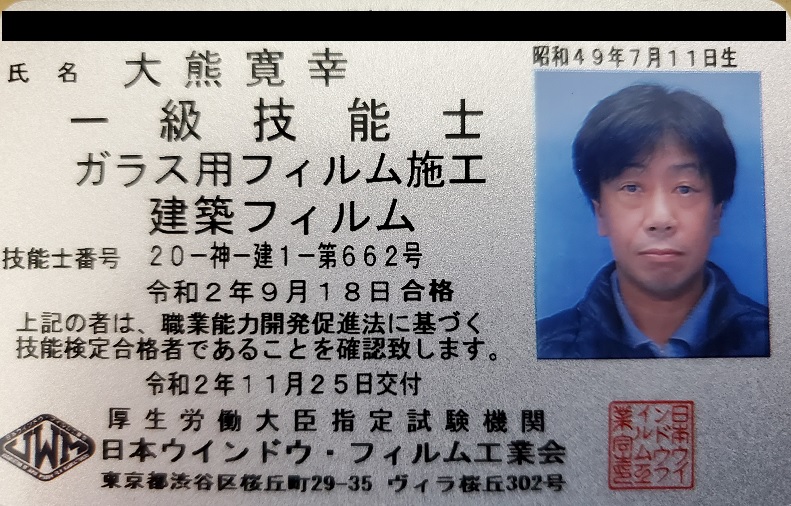 氏名 大熊寛幸
昭和49年7月11日生
一級技能士
ガラス用フィルム施工
建築フィルム
技能士番号 20-神-建1-第662号
令和2年9月18日合格
上記の者は、職業能力開発促進法に基づく
技能検定合格者であることを確認致します。
令和2年11月25日交付
厚生労働大臣指定試験機関
JWM
日本ウインドウ・フィルム工業会
東京都渋谷区桜丘町29-35 ヴィラ桜丘302号